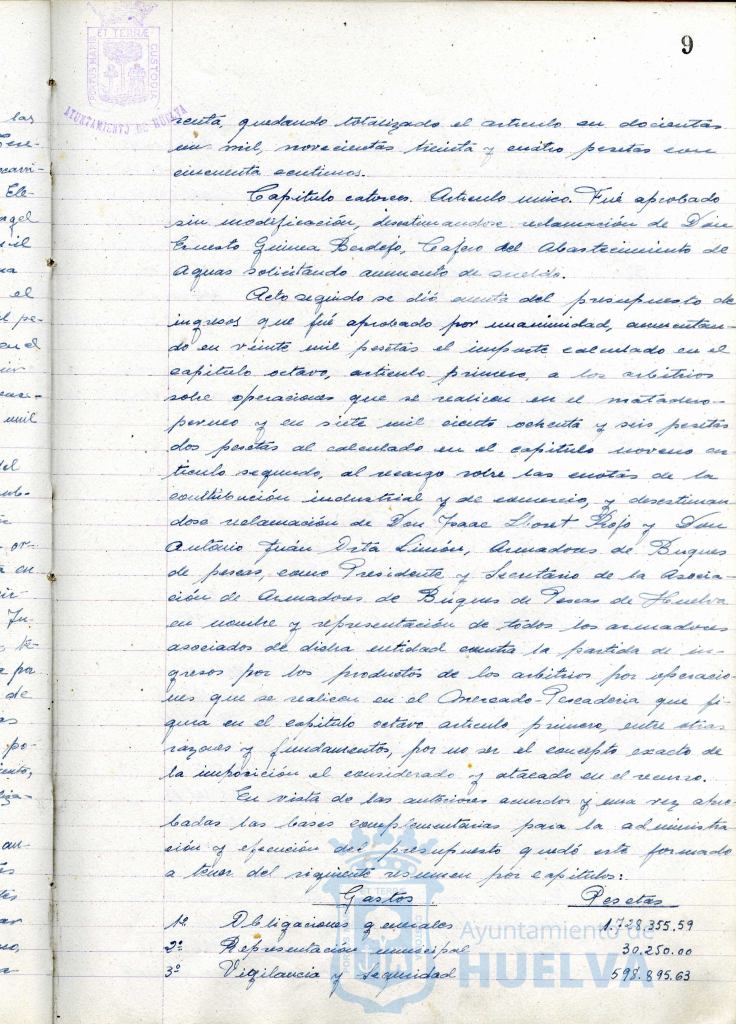 9
PORTUS MARIS
ET TERRÆ
CUSTODIA
AYUNTAMIENTO DE HUELVA
renta, quedando totalizado el artículo en docientas
un mil, novecientas treinta y cuatro pesetas con
cincuenta centimos.
Capítulo catorce. Artículo único. Fué aprobado
sin modificación, desestimandose reclamación de Don
Ernesto Guinea Berdejo, Cajero del Abastecimiento de
Aguas solicitando aumento de sueldo.
Acto seguido se dió cuenta del presupuesto de
ingresos que fué aprobado por unanimidad, aumentan-
do en veinte mil pesetas el importe calculado en el
capítulo octavo, artículo primero, a los arbitrios
sobre operaciones que se realicen en el matadero-
porcino y en siete mil ciento ochenta y seis pesetas
dos pesetas al calculado en el capítulo noveno ar-
tículo segundo, al recargo sobre las cuotas de la
contribución industrial y de comercio, y desestiman
dose reclamación de Don Isaac Lloret Rojo y Don
Antonio Juán Orta Limón, Armadores de Buques
de pescas, como Presidente y Secretario de la Asocia-
ción de Armadores de Buques de Pescas de Huelva
en nombre y representación de todos los armadores
asociados de dicha entidad contra la partida de in-
gresos por los productos de los arbitrios por operacio-
nes que se realicen en el Mercado-Pescadería que fi-
gura en el capítulo octavo artículo primero, entre otras
razones y fundamentos, por no ser el concepto exacto de
la imposición el considerado y atacado en el recurso.
En vista de las anteriores acuerdos y una vez apro
badas las bases complementarias para la administra
ción y ejecución del presupuesto quedó este formado
a tenor del siguiente resumen por capítulos:
Gastos Pesetas
1º Obligaciones generales 1.728.355.59
2º Representación municipal 30.250.00
3º Vigilancia y Seguridad 598.895.63
Ayuntamiento de
HUELVA